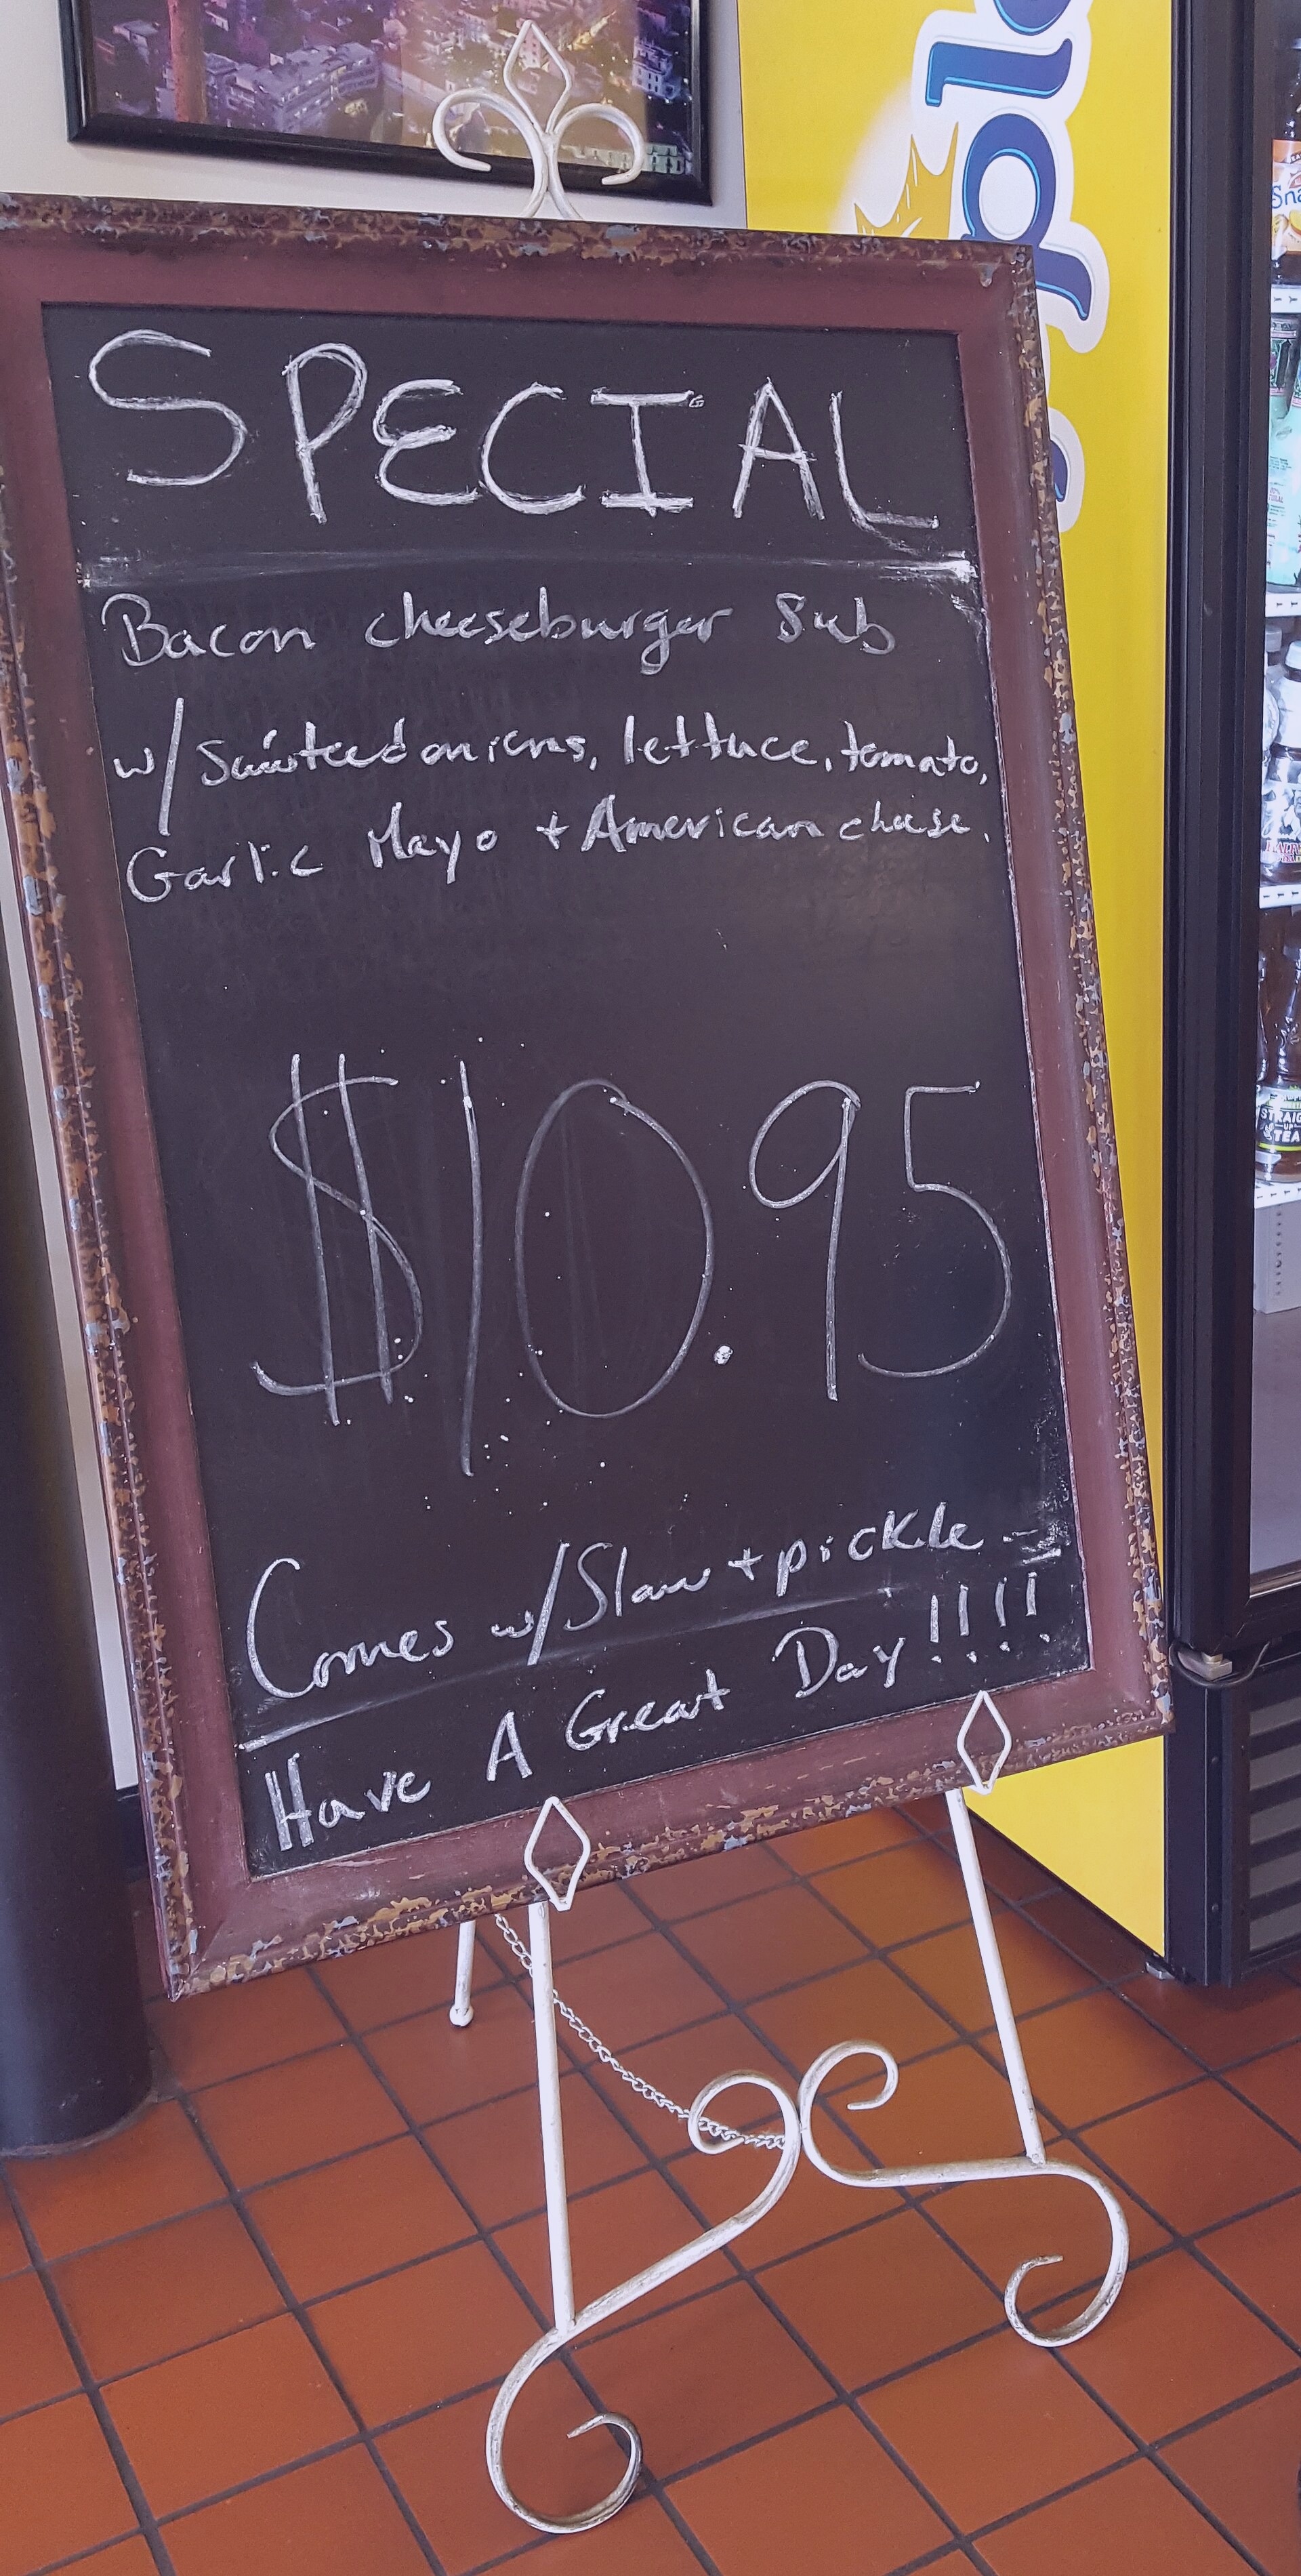 SPECIAL
Bacon cheeseburger Sub
w/ Sauteed onions, lettuce, tomato,
Garlic Mayo + American cheese.
$10.95
Comes w/ Slaw + pickle -
Have A Great Day!!!!
Sna
STRAIG
UP
TEA